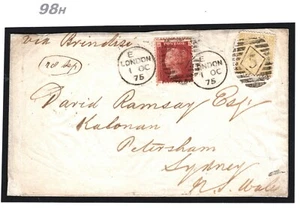 98H
via Brindisi
E
LONDON
1 OC
75
E
LONDON
1 OC
75
3
David Ramsay Esqr
Kalonan
Petersham
Sydney
N.S. Wales